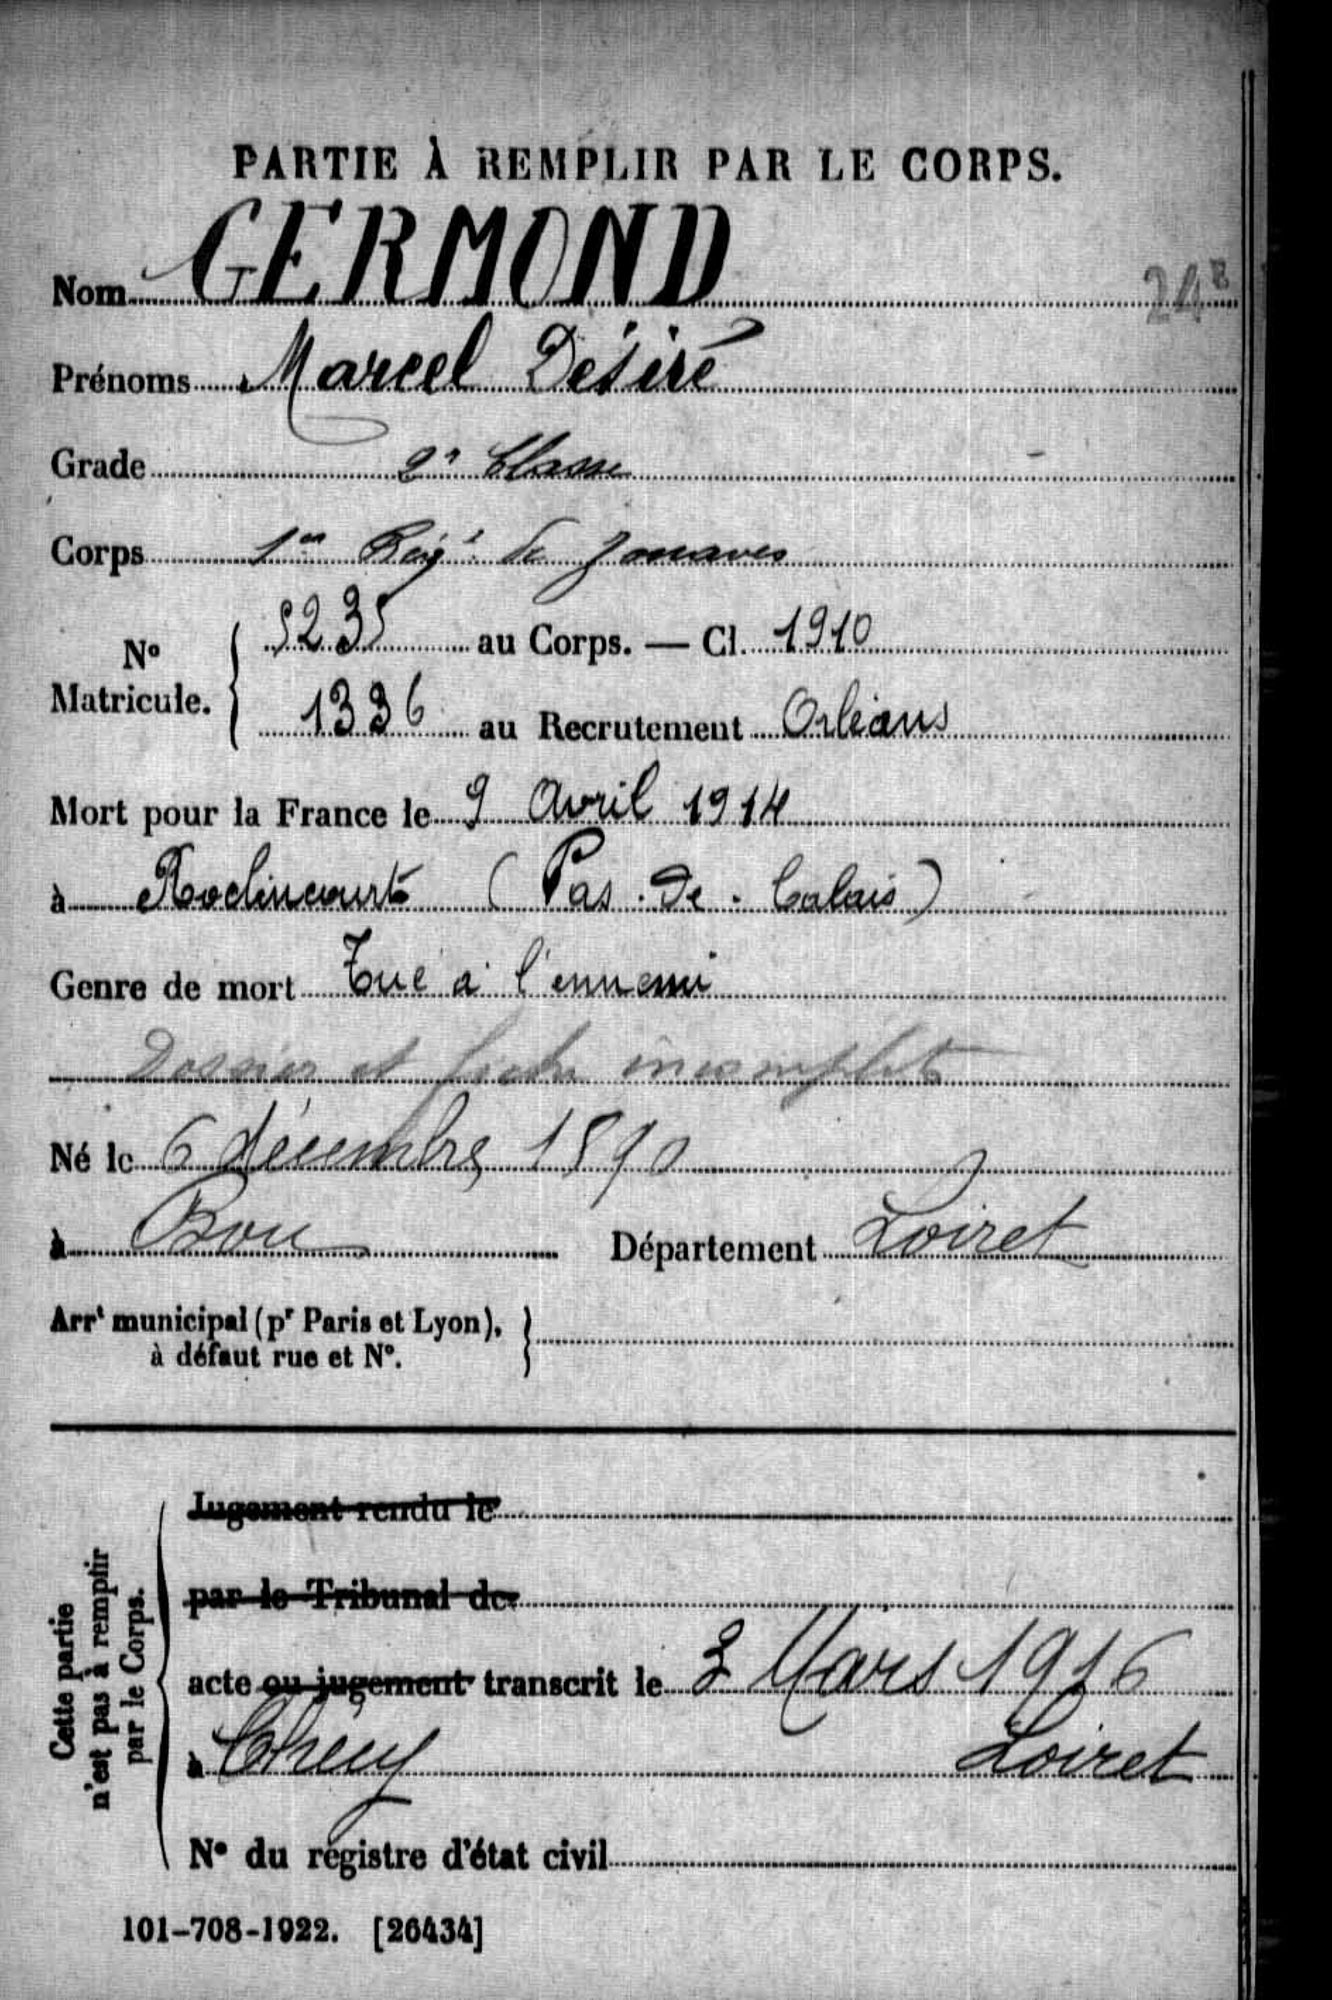 PARTIE À REMPLIR PAR LE CORPS.
Nom GERMOND
24
Prénoms Marcel Désiré
Grade 2e Classe
Corps 1er Régt de Zouaves
No Matricule. { 5235 au Corps. — Cl. 1910
1336 au Recrutement Orléans
Mort pour la France le 9 Avril 1914
à Roclincourt (Pas-de-Calais)
Genre de mort Tué à l'ennemi
Dossier et fiche incomplets
Né le 6 décembre 1890
à Bou Département Loiret
Arrt municipal (pr Paris et Lyon), à défaut rue et No. }
Cette partie n'est pas à remplir par le Corps.
Jugement rendu le
par le Tribunal de
acte ou jugement transcrit le 3 Mars 1916
à Chécy Loiret
No du registre d'état civil
101-708-1922. [26434]